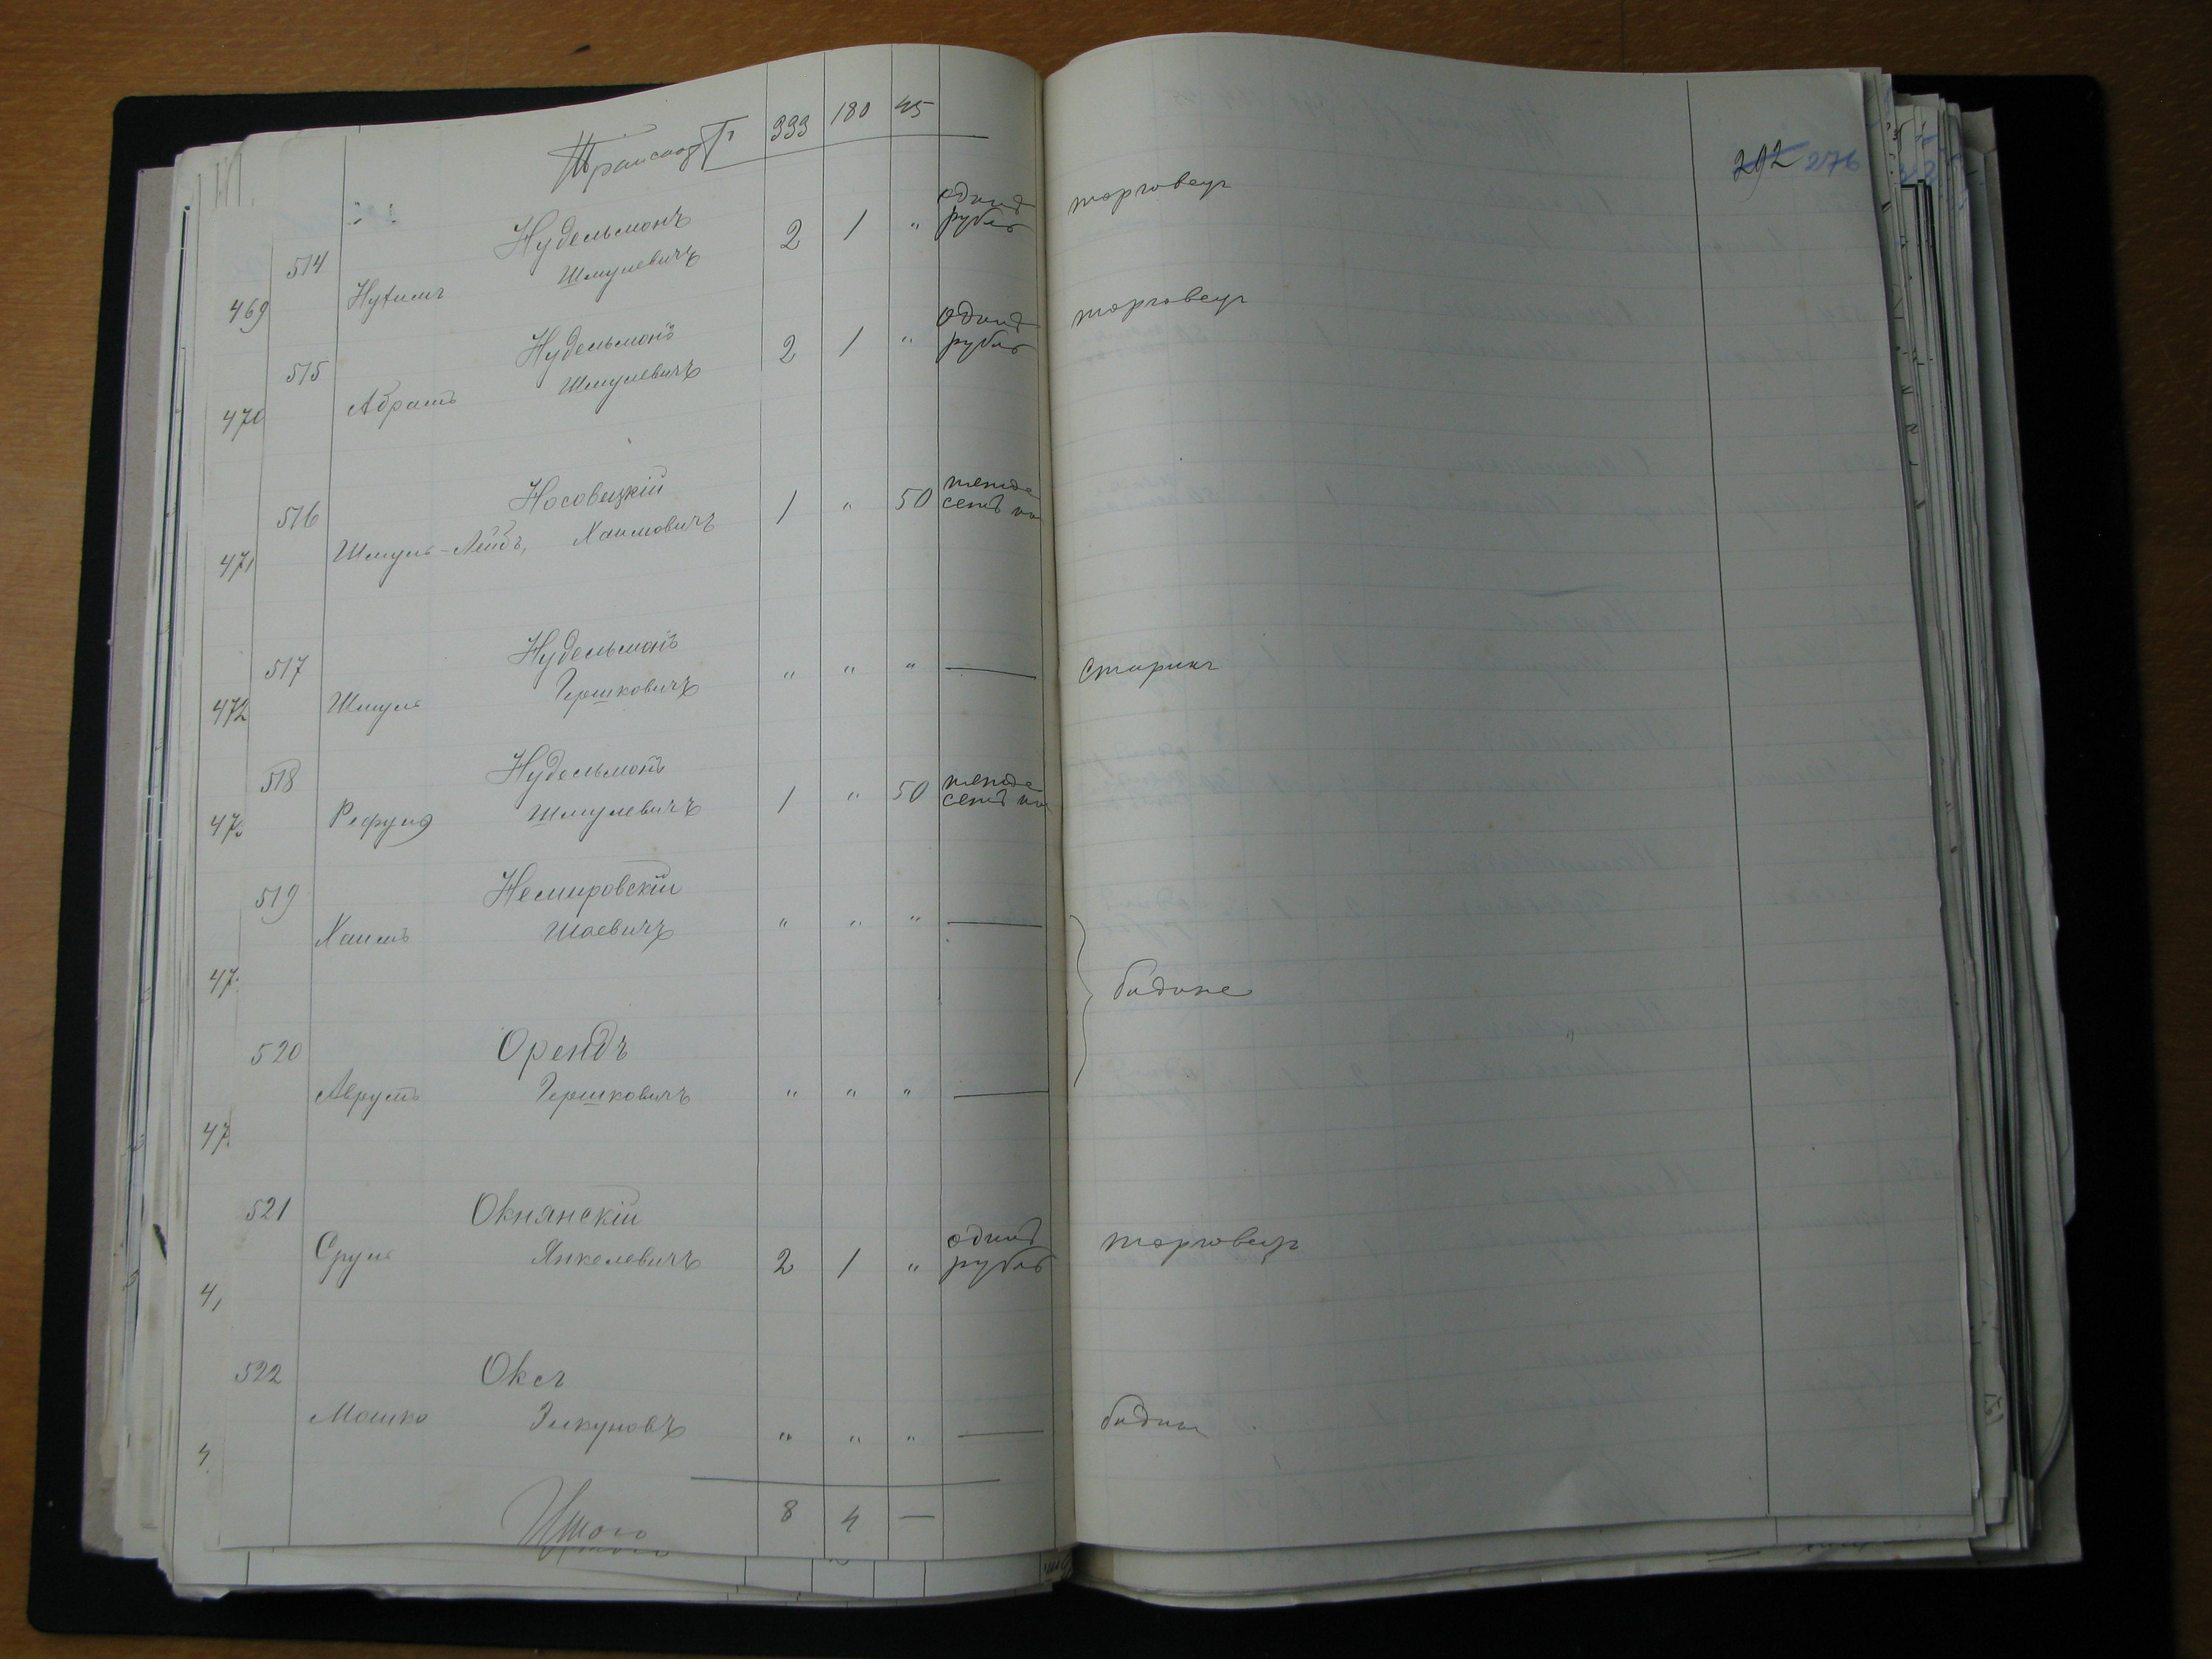 Транспортъ 333 180 45
292 276
514 Нудельманъ
469 Нухимъ Шмулевичъ 2 1 " одинъ рубль торговецъ
515 Нудельманъ
470 Абрамъ Шмулевичъ 2 1 " одинъ рубль торговецъ
516 Носовецкій
471 Шмуль-Лейбъ, Хаимовичъ 1 " 50
517 Нудельманъ
472 Шмуль Гершковичъ " " " — старикъ
518 Нудельманъ
47 Рефулъ Шмулевичъ 1 " 50
519 Немировскій
Хаимъ Шаевичъ " " " —
47
бѣдные
520 Орендъ
Аврумъ Гершковичъ " " " —
47
521 Окнянскій
Сруль Янкелевичъ 2 1 " одинъ рубль торговецъ
4
522 Оксъ
Мошко Элкуновъ " " " —
4
Итого 8 4 —